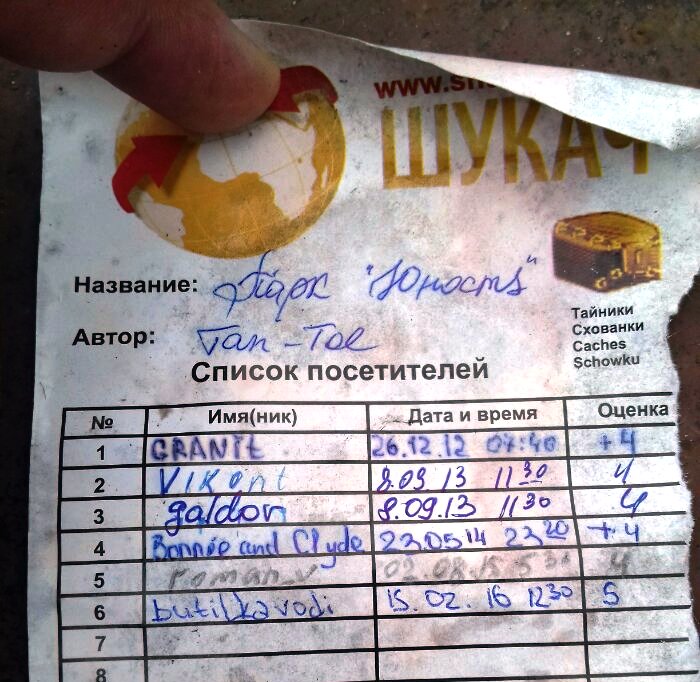 ШУКАЧ
Название: Парк "Юность"
Автор: Tan-Tae
Тайники
Схованки
Caches
Schowku
Список посетителей
№ Имя(ник) Дата и время Оценка
1 GRANit 26.12.12 07:40 +4
2 Vikont 8.09 13 11 30 4
3 galdor 8.09.13 11 30 4
4 Bonnie and Clyde 23.05 14 23 20 +4
5 roman_v 02 08 15 5 30 4
6 butilkavodi 15.02.16 12 30 5
7
8